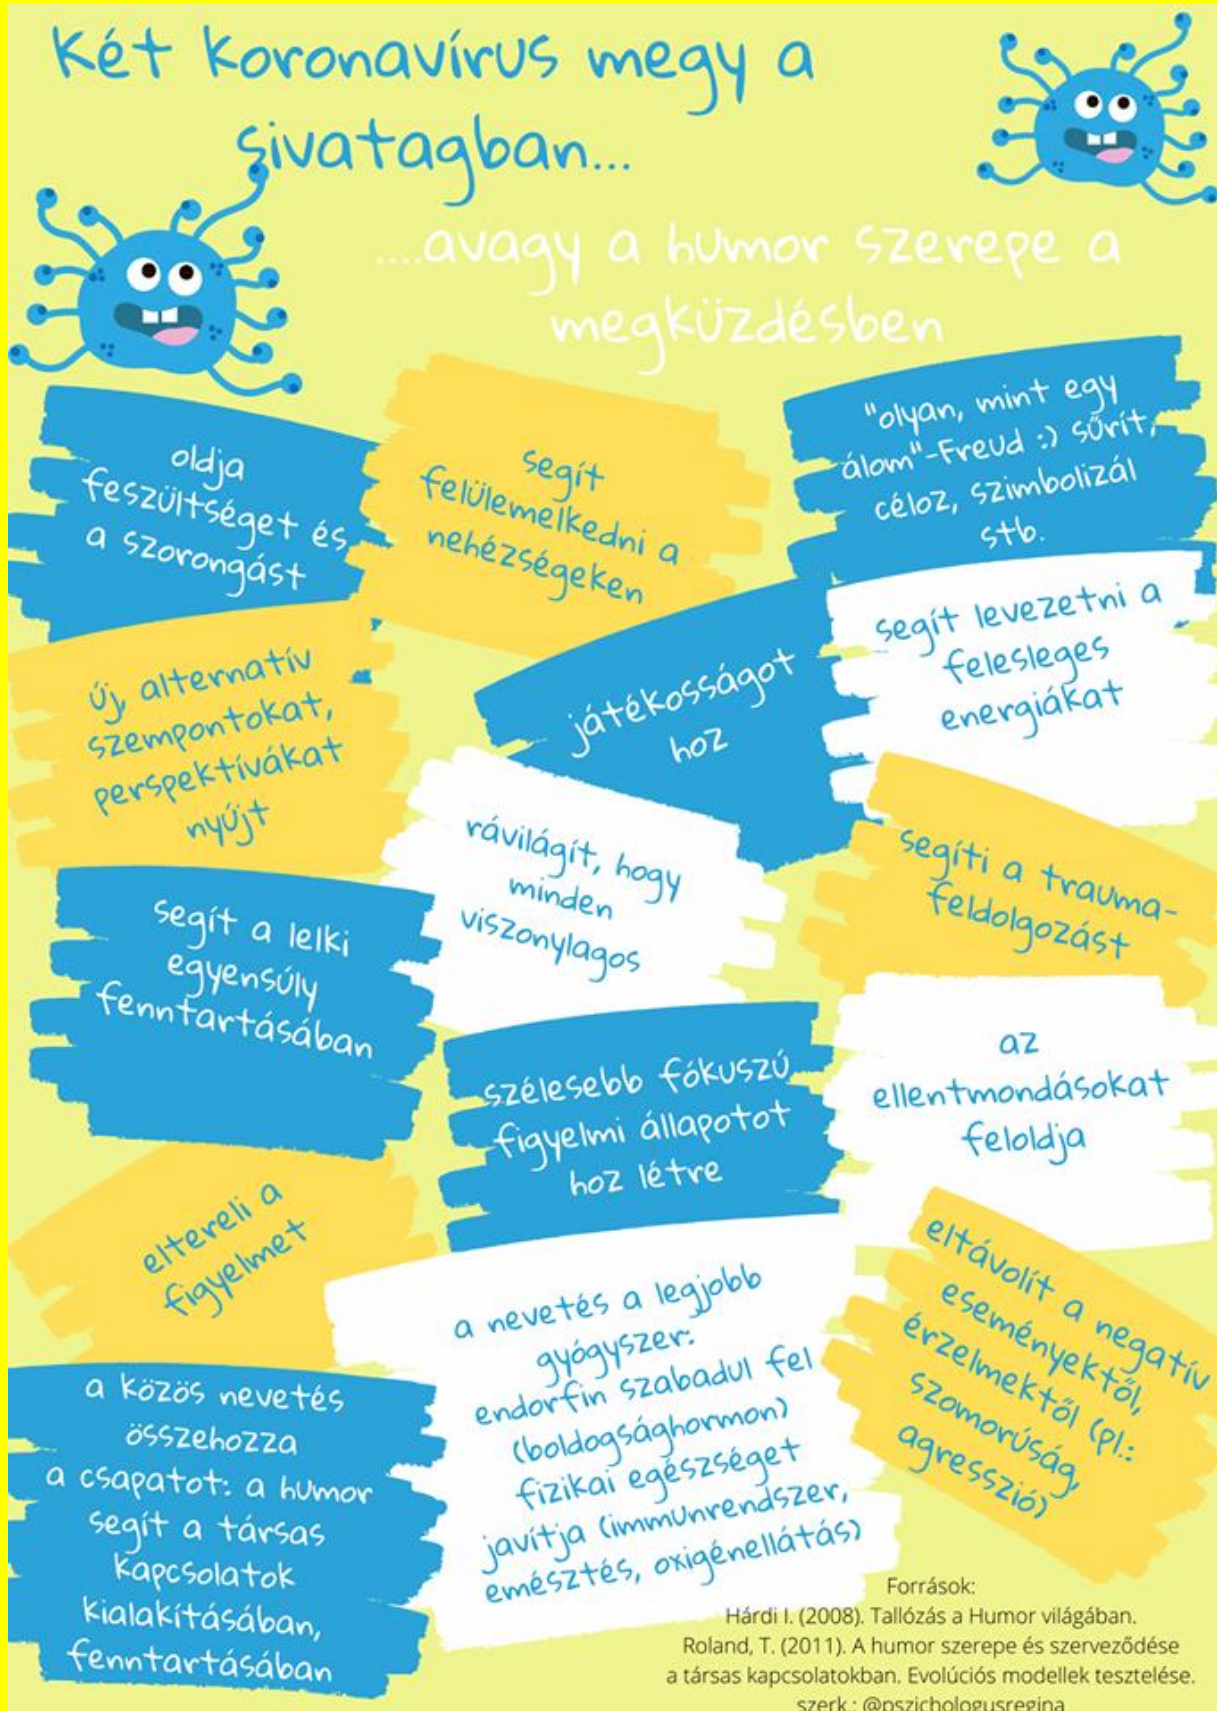 Két koronavírus megy a
sivatagban...
....avagy a humor szerepe a
megküzdésben
oldja
feszültséget és
a szorongást
segít
felülemelkedni a
nehézségeken
"olyan, mint egy
álom"-Freud :) sűrít,
céloz, szimbolizál
stb.
új, alternatív
szempontokat,
perspektívákat
nyújt
játékosságot
hoz
segít levezetni a
felesleges
energiákat
rávilágít, hogy
minden
viszonylagos
segíti a trauma-
feldolgozást
segít a lelki
egyensúly
fenntartásában
szélesebb fókuszú
figyelmi állapotot
hoz létre
az
ellentmondásokat
feloldja
eltereli a
figyelmet
a nevetés a legjobb
gyógyszer:
endorfin szabadul fel
(boldogsághormon)
fizikai egészséget
javítja (immunrendszer,
emésztés, oxigénellátás)
eltávolít a negatív
eseményektől,
érzelmektől (pl.:
szomorúság,
agresszió)
a közös nevetés
összehozza
a csapatot: a humor
segít a társas
kapcsolatok
kialakításában,
fenntartásában
Források:
Hárdi I. (2008). Tallózás a Humor világában.
Roland, T. (2011). A humor szerepe és szerveződése
a társas kapcsolatokban. Evolúciós modellek tesztelése.
szerk.: @pszichologusregina